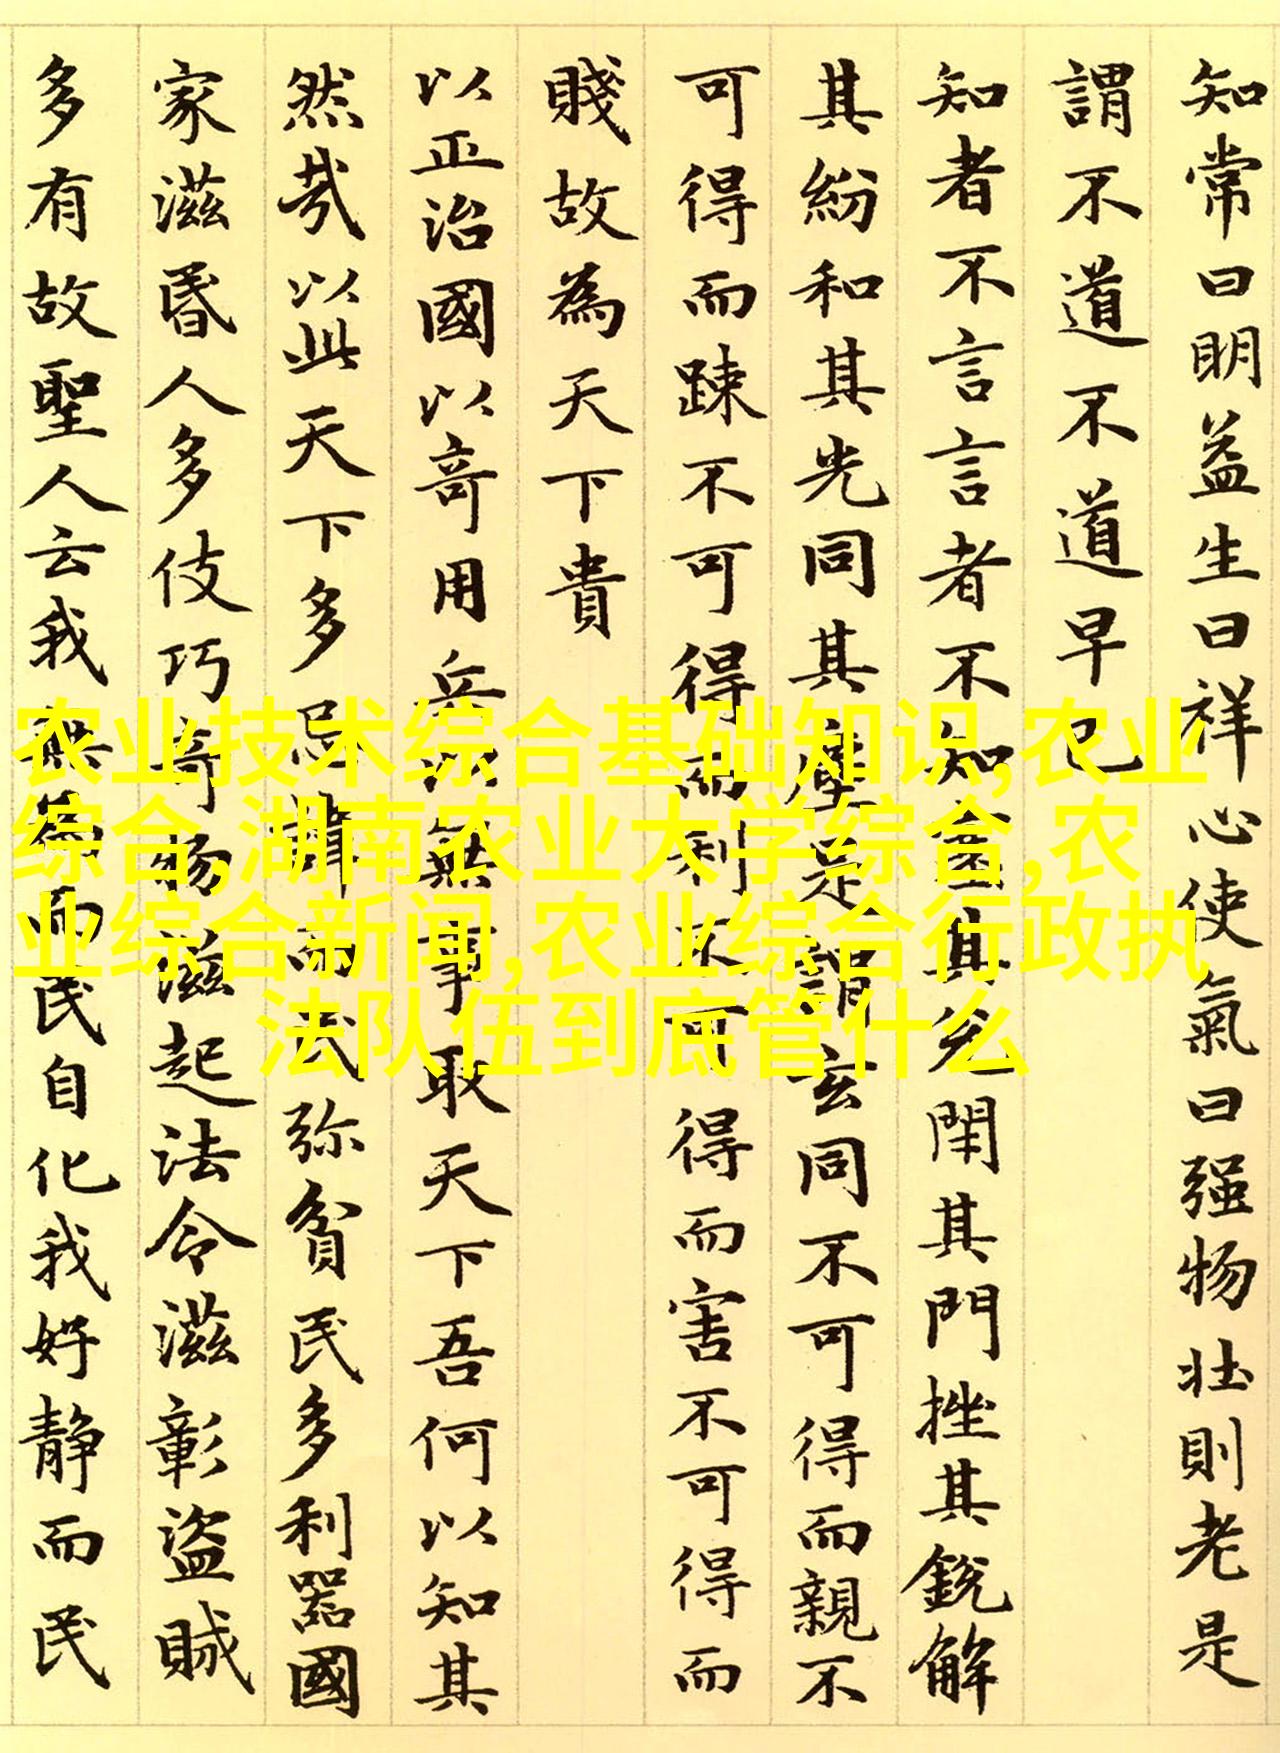 知常曰明益生曰祥心使氣曰强物壯則老是
謂不道不道早已
知者不言言者不知塞其兌閉其門挫其銳解
其紛和其光同其塵是謂玄同不可得而親不
可得而踈不可得而利不可得而害不可得而
賤故為天下貴
以正治國以奇用兵以無事取天下吾何以知其
然哉以此天下多忌諱而民弥貧民多利器國
家滋昏人多伎巧奇物滋起法令滋彰盜賊
多有故聖人云我無為而民自化我好静而民
农业技术综合基础知识,农业
综合,湖南农业大学综合,农
业综合新闻,农业综合行政执
法队伍到底管什么